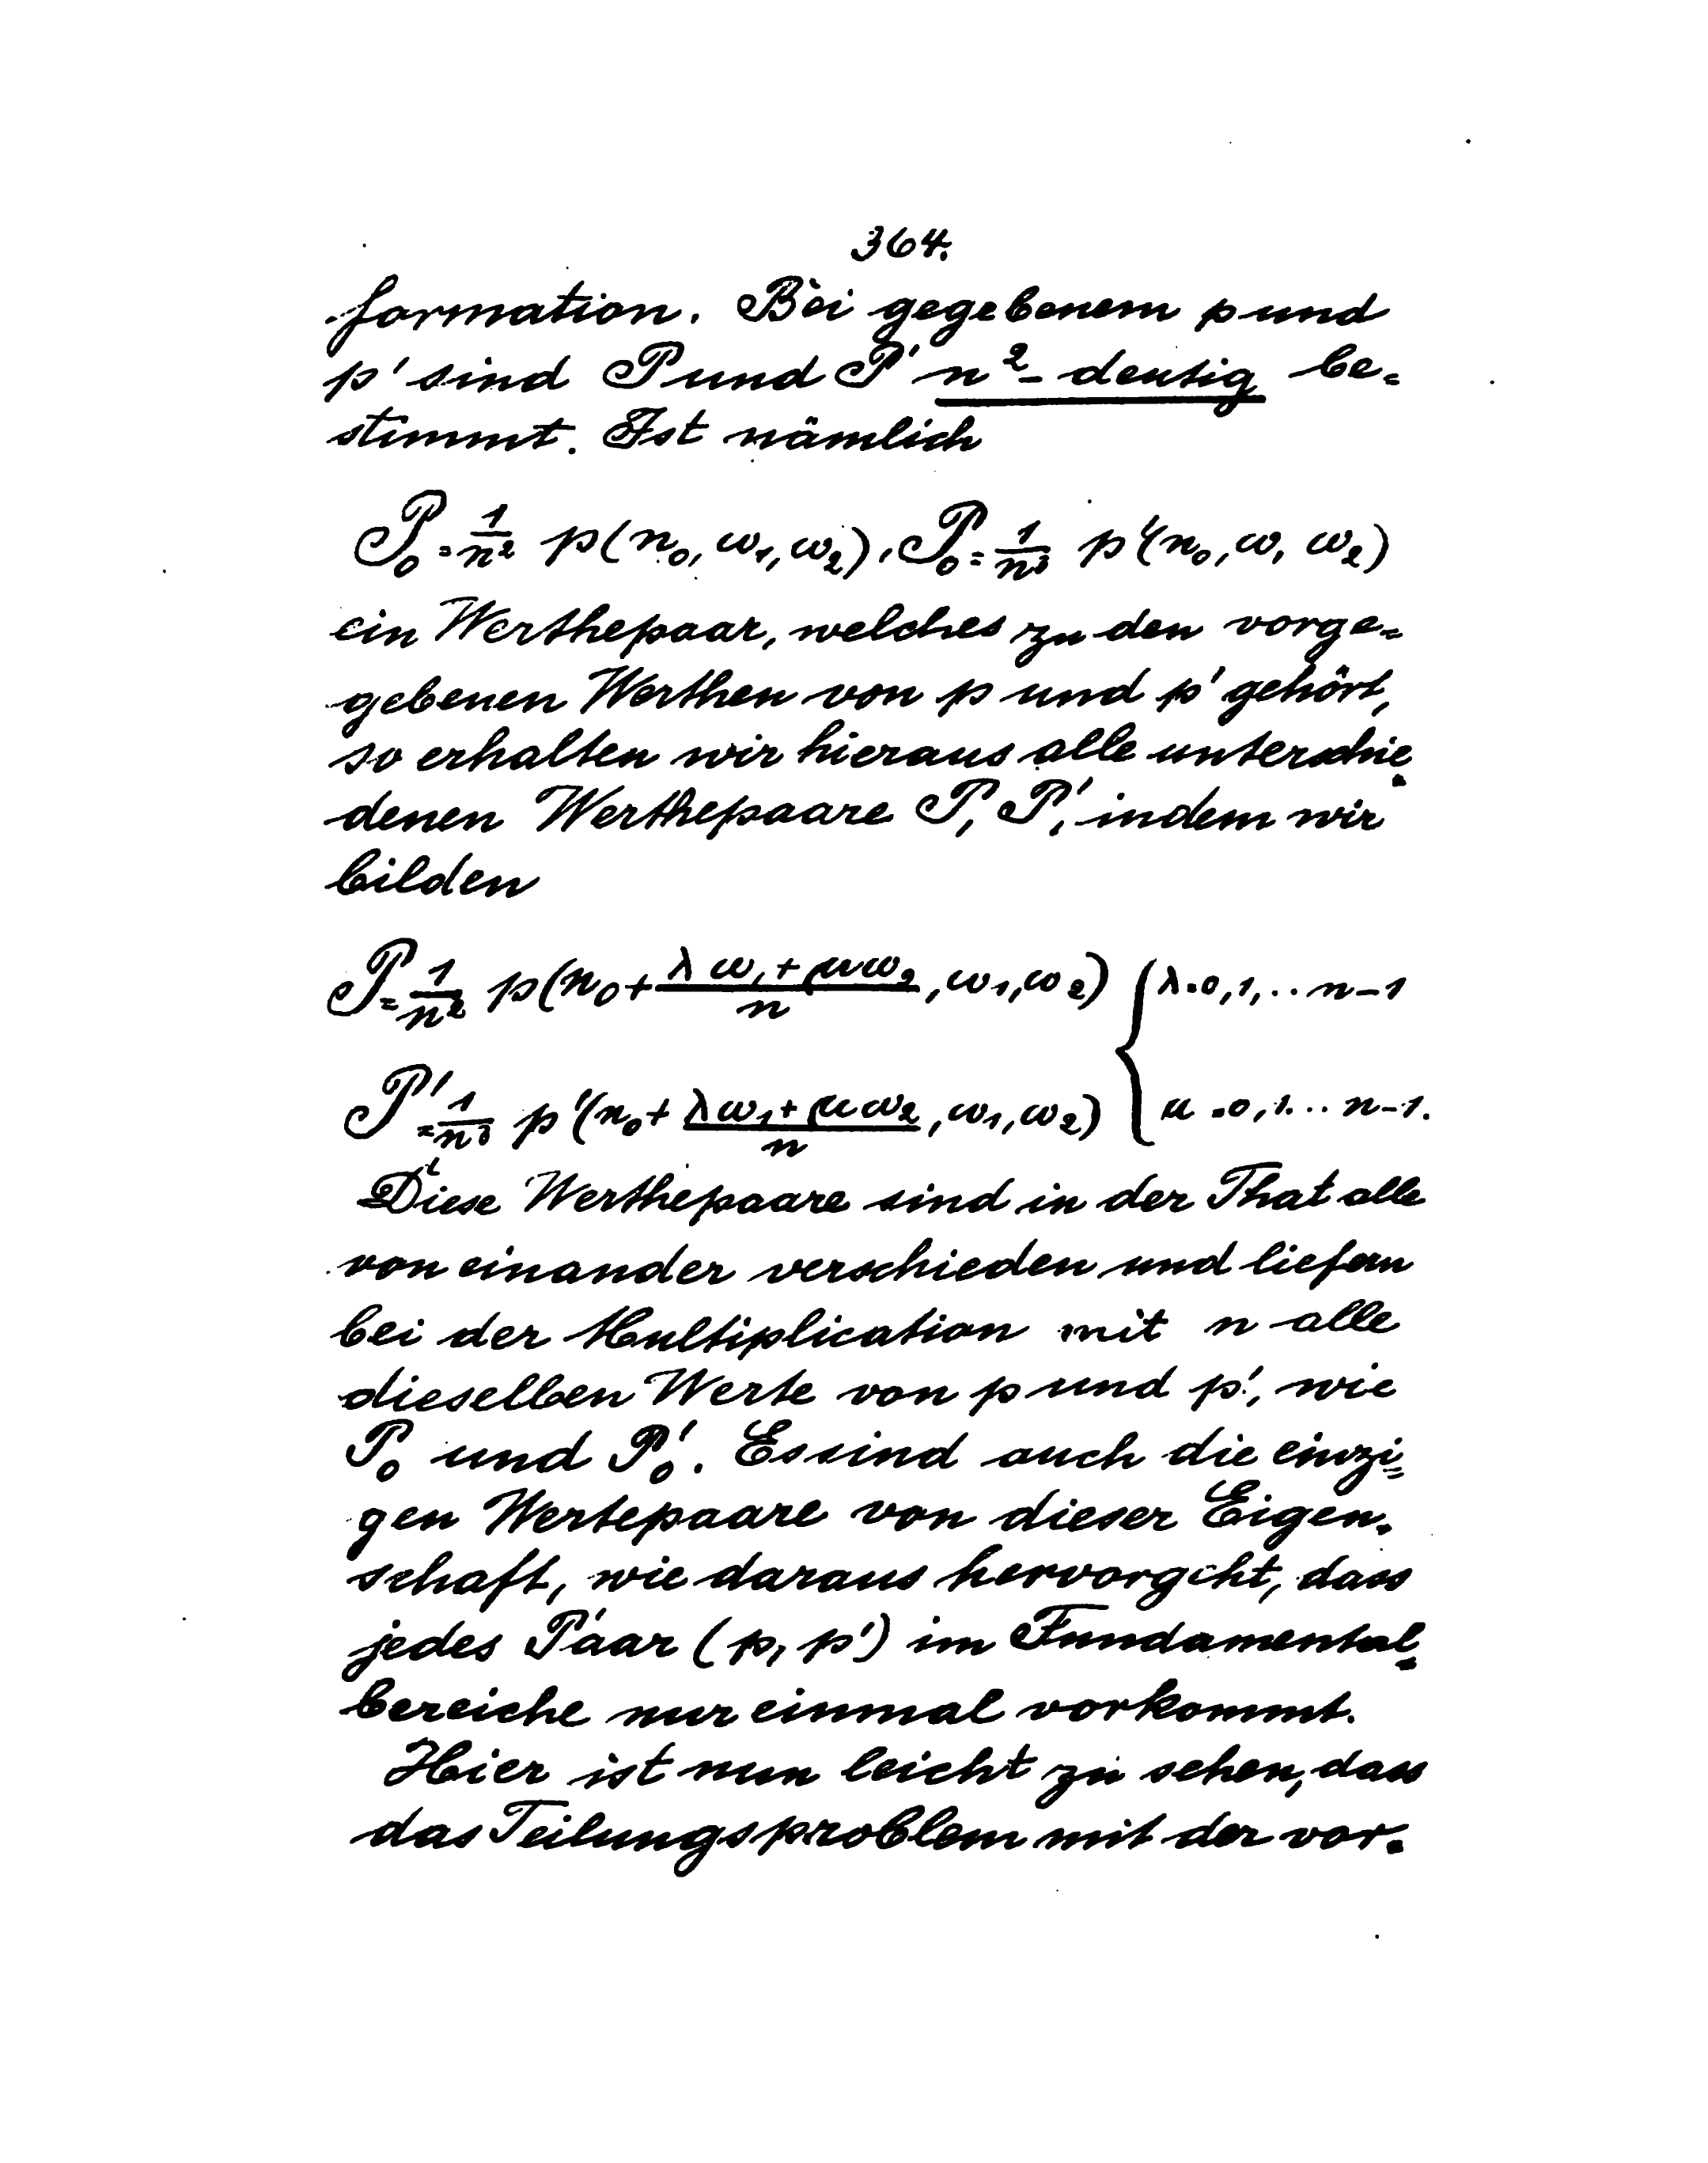 364.
formation. Bei gegebenem p und
p' sind P und P' n²-deutig be=
stimmt. Ist nämlich
P₀ = 1/n² p(n₀, ω₁, ω₂), P₀ = 1/n³ p'(n₀, ω, ω₂)
ein Werthepaar, welches zu den vorge=
gebenen Werthen von p und p' gehört,
so erhalten wir hieraus alle unterschie-
denen Werthepaare P, P', indem wir
bilden
P = 1/n² p(n₀ + (λω₁ + μω₂)/n, ω₁, ω₂) { λ = 0, 1, .. n-1
P' = 1/n³ p'(n₀ + (λω₁ + μω₂)/n, ω₁, ω₂) μ = 0, 1... n-1.
Diese Werthepaare sind in der That alle
von einander verschieden und liefern
bei der Multiplication mit n alle
dieselben Werte von p und p', wie
P₀ und P₀'. Es sind auch die einzi=
gen Wertepaare von dieser Eigen-
schaft, wie daraus hervorgeht, dass
jedes Paar (p, p') im Fundamental=
bereiche nur einmal vorkommt.
Hier ist nun leicht zu sehen, dass
das Teilungsproblem mit der vor-